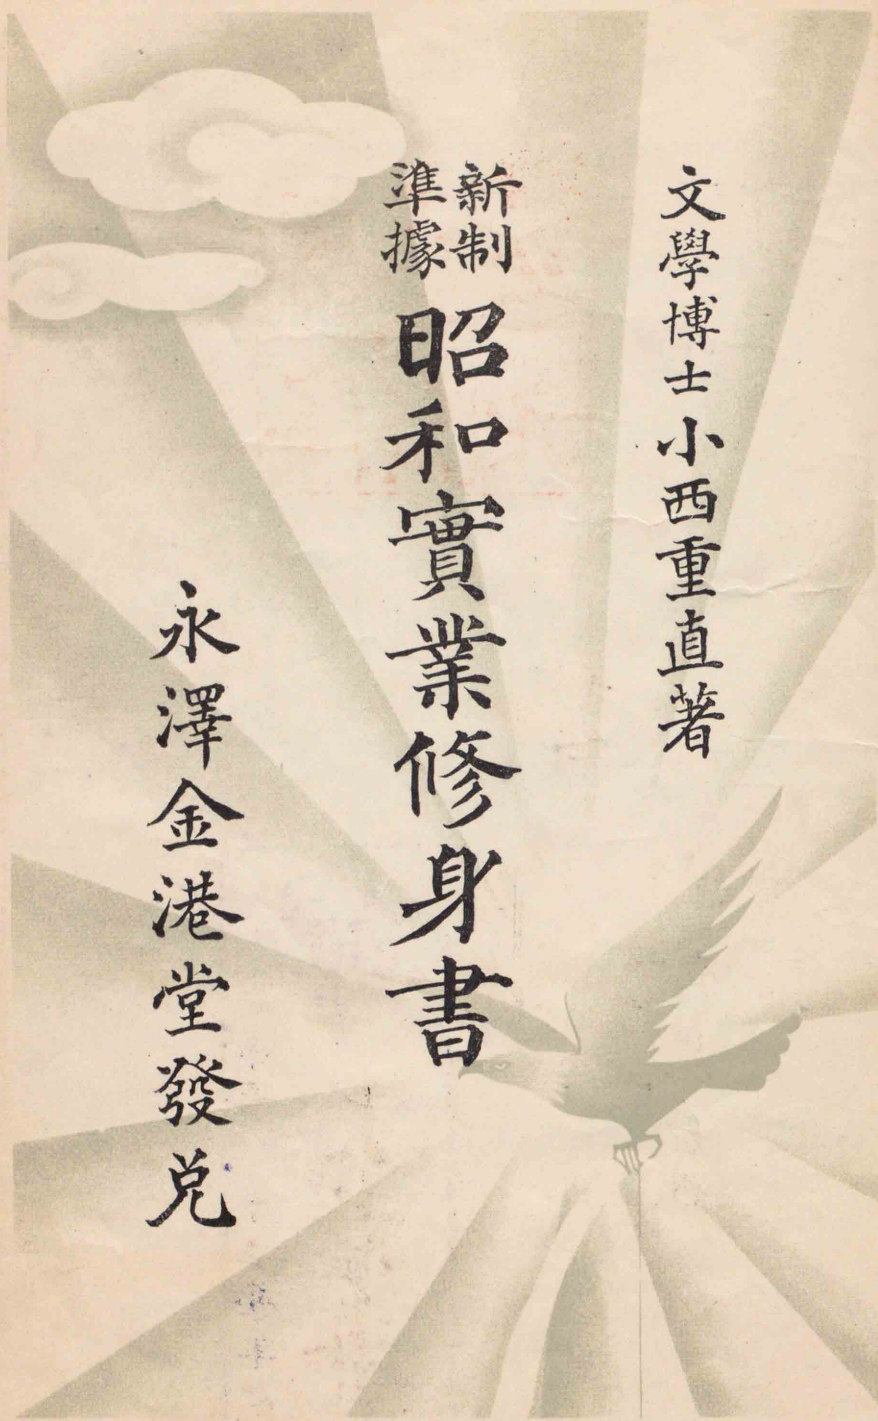 文學博士小西重直著
新制
準據
昭和實業修身書
永澤金港堂發兌